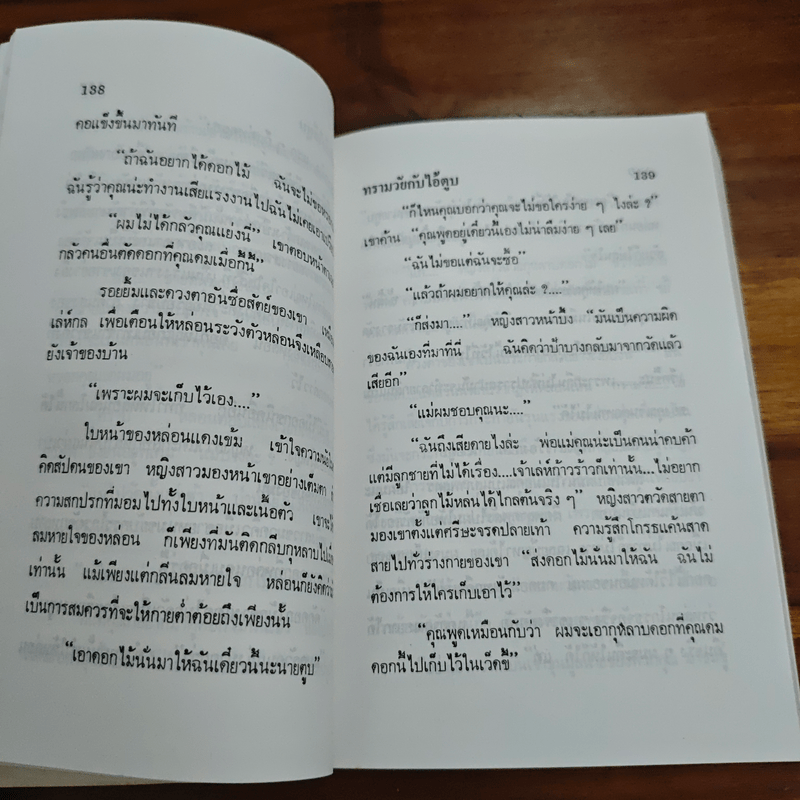 138
คอแข็งขึ้นมาทันที
“ถ้าฉันอยากได้ดอกไม้ ฉันจะไม่ขอ
ฉันรู้ว่าคุณน่ะทำงานเสียแรงงานไปฉันไม่เคยเอา
“ผมไม่ได้กลัวคุณแย่งนี่” เขาตอบหน้าตา
กลัวคนอื่นตัดดอกที่คุณดมเมื่อกี้นี้”
รอยยิ้มและดวงตาอันซื่อสัตย์ของเขา
เล่ห์กล เพื่อเตือนให้หล่อนระวังตัวหล่อนจึงเหลือบ
ยังเจ้าของบ้าน
“เพราะผมจะเก็บไว้เอง....”
ใบหน้าของหล่อนแดงเข้ม เข้าใจความ
คิดสัปดนของเขา หญิงสาวมองหน้าเขาอย่างเต็มตา
ความสกปรกที่มอมไปทั้งใบหน้าและเนื้อตัว เขาจะ
ลมหายใจของหล่อน ก็เพียงที่มันติดกลีบกุหลาบไป
เท่านั้น แม้เพียงแต่กลิ่นลมหายใจ หล่อนก็ยังคิดว่า
เป็นการสมควรที่จะให้กายต่ำต้อยถึงเพียงนั้น
“เอาดอกไม้นั่นมาให้ฉันเดี๋ยวนี้นะนายตูบ”
ทรามวัยกับไอ้ตูบ 139
“ก็ไหนคุณบอกว่าคุณจะไม่ขอใครง่าย ๆ ไงล่ะ ?”
เขาค้าน “คุณพูดอยู่เดี๋ยวนี้เองไม่น่าลืมง่าย ๆ เลย”
“ฉันไม่ขอแต่ฉันจะซื้อ”
“แล้วถ้าผมอยากให้คุณล่ะ ?....”
“ก็ส่งมา....” หญิงสาวหน้าบึ้ง “มันเป็นความผิด
ของฉันเองที่มาที่นี่ ฉันคิดว่าป้าบางกลับมาจากวัดแล้ว
เสียอีก”
“แม่ผมชอบคุณนะ....”
“ฉันถึงเสียดายไงล่ะ พ่อแม่คุณน่ะเป็นคนน่าคบค้า
แต่มีลูกชายที่ไม่ได้เรื่อง....เจ้าเล่ห์ก้าวร้าวก็เท่านั้น...ไม่อยาก
เชื่อเลยว่าลูกไม้หล่นได้ไกลต้นจริง ๆ” หญิงสาวตวัดสายตา
มองเขาตั้งแต่ศรีษะจรดปลายเท้า ความรู้สึกโกรธแค้นสาด
สายไปทั่วร่างกายของเขา “ส่งดอกไม้นั่นมาให้ฉัน ฉันไม่
ต้องการให้ใครเก็บเอาไว้”
“คุณพูดเหมือนกับว่า ผมจะเอากุหลาบดอกที่คุณดม
ดอกนี้ไปเก็บไว้ในเว็ดขี้”